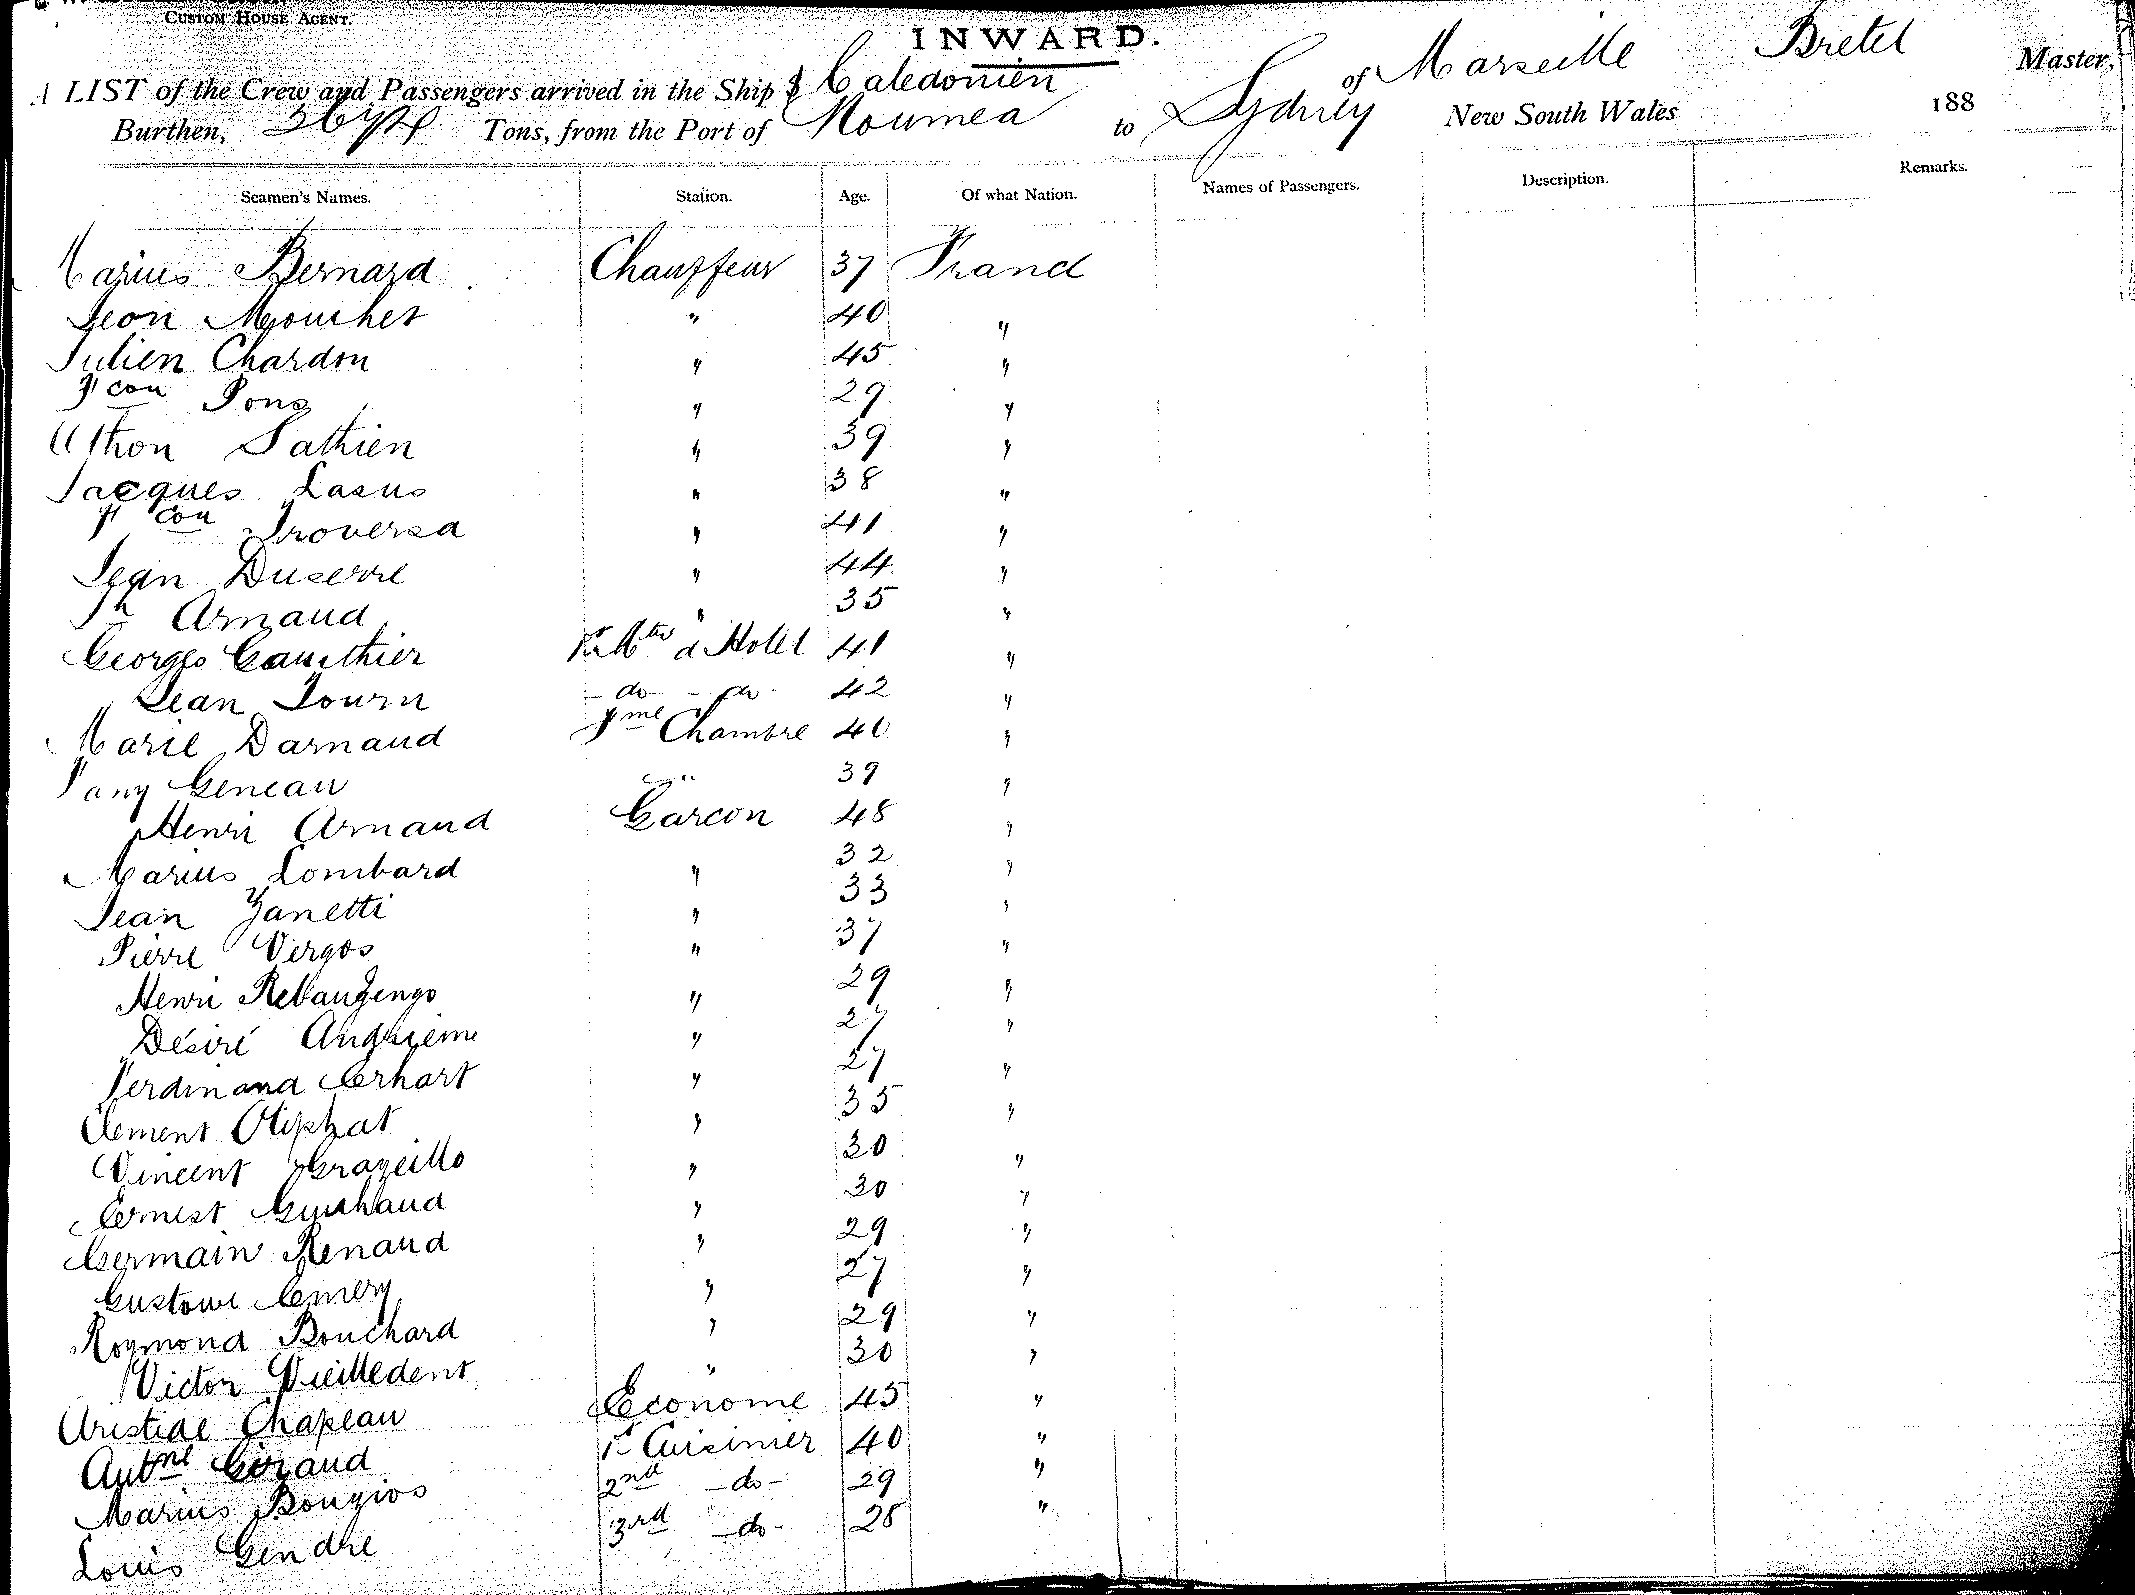 CUSTOM HOUSE AGENT.
INWARD.
A LIST of the Crew and Passengers arrived in the Ship Caledonien of Marseille Bretel Master,
Burthen, Tons, from the Port of Noumea to Sydney New South Wales 188
Seamen's Names. Station. Age. Of what Nation. Names of Passengers. Description. Remarks.
Marius Bernard Chauffeur 37 Francd
Leon Mouchet " 40 "
Julien Chardon " 45 "
Fcou Pons " 29 "
Athon Sathien " 39 "
Jacques Lasus " 38 "
Fcou Troversa " 41 "
Jean Duserre " 44 "
Jh Arnaud " 35 "
Georges Gauthier 1er Mtre d Hotel 41 "
Jean Tourn - do - do - 42 "
Marie Darnaud fme Chambre 40 "
Fany Geneau " 39 "
Henri Arnaud Garcon 48 "
Marius Lombard " 32 "
Jean Zanetti " 33 "
Pierre Vergos " 37 "
Henri Rebaugengo " 29 "
Désiré " 27 "
Ferdinand Erhart " 27 "
Clement Oliphat " 35 "
Vincent Grazeillo " 30 "
Ernest Guichaud " 30 "
Germain Renaud " 29 "
Gustave Emery " 27 "
Raymond Bouchard " 29 "
Victor Vieilledent " 30 "
Aristide Chapeau Econome 45 "
Antne Giraud 1er Cuisinier 40 "
Marius Bougios 2nd - do - 29 "
Louis Gendre 3rd - do - 28 "